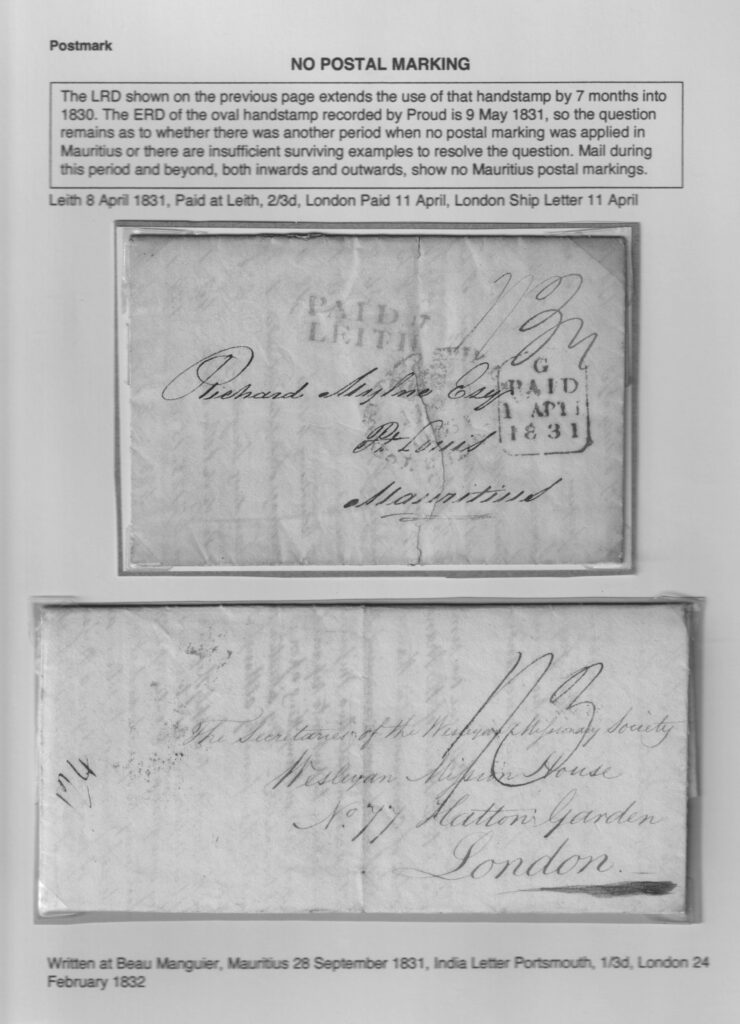 Postmark
NO POSTAL MARKING
The LRD shown on the previous page extends the use of that handstamp by 7 months into
1830. The ERD of the oval handstamp recorded by Proud is 9 May 1831, so the question
remains as to whether there was another period when no postal marking was applied in
Mauritius or there are insufficient surviving examples to resolve the question. Mail during
this period and beyond, both inwards and outwards, show no Mauritius postal markings.
Leith 8 April 1831, Paid at Leith, 2/3d, London Paid 11 April, London Ship Letter 11 April
PAID
LEITH
Richard Mylne Esqr
Pt. Louis
Mauritius
G
PAID
1831
The Secretaries of the Wesleyan Missionary Society
Wesleyan Mission House
No. 77 Hatton Garden
London.
Written at Beau Manguier, Mauritius 28 September 1831, India Letter Portsmouth, 1/3d, London 24
February 1832